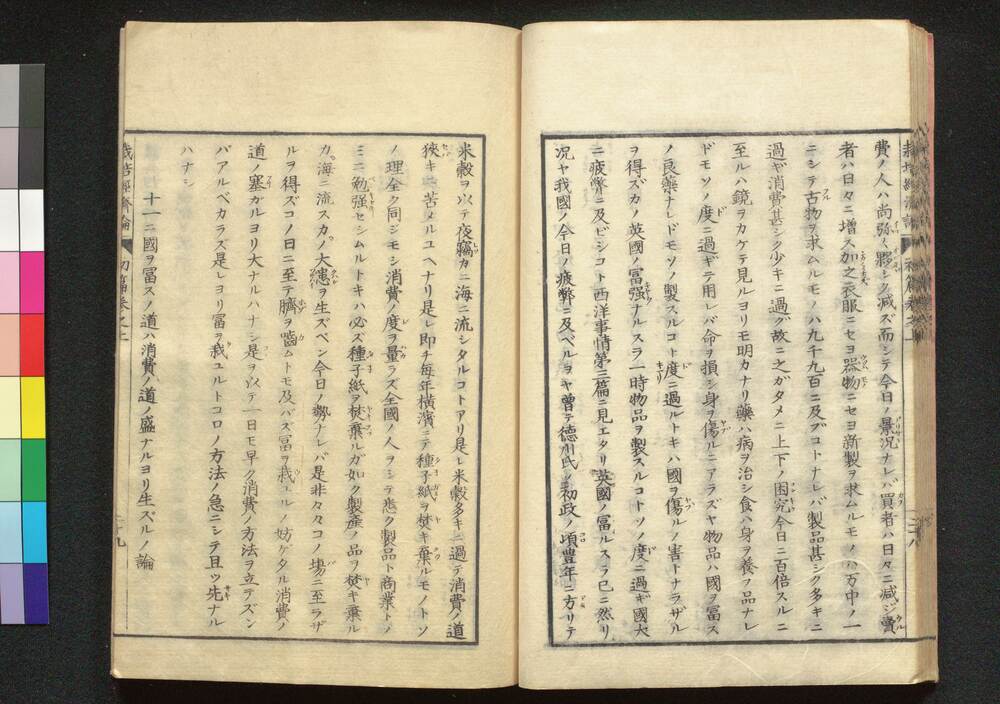 費ノ人ハ尚弥々夥シク減ズ而シテ今日ノ景況ナレバ買者ハ日々ニ減ジ賣
者ハ日々ニ増ス加之衣服ニセヨ器物ニセヨ新製ヲ求ムルモノハ万中ノ一
ニシテ古物ヲ求ムルモノハ九千九百ニ及ブコトナレバ製品甚シク多キニ
過ギ消費甚シク少キニ過グ故ニ之ガタメニ上下ノ困究今日ニ百倍スルニ
至ルハ鏡ヲカケテ見ルヨリモ明カナリ藥ハ病ヲ治シ食ハ身ヲ養フ品ナレ
ドモソノ度ニ過ギテ用レバ命ヲ損シ身ヲ傷ルニアラズヤ物品ハ國ヲ冨ス
ノ良藥ナレドモソノ製スルコト度ニ過ルトキハ國ヲ傷ルノ害トナラザル
ヲ得ズカノ英國ノ冨强ナルスラ一時物品ヲ製スルコトソノ度ニ過ギ國大
ニ疲弊ニ及ビシコト西洋事情第三篇ニ見エタリ英國ノ冨ルスラ已ニ然リ
況ヤ我國ノ今日ノ疲弊ニ及ベルヲヤ曽テ德川氏ノ初政ノ頃豊年ニ方リテ
米穀ヲ以テ夜竊カニ海ニ流シタルコトアリ是レ米穀多キニ過テ消費ノ道
狹キニ苦メルユヘナリ是レ即チ毎年横濱ニテ種子紙ヲ焚キ棄ルモノトソ
ノ理全ク同ジモシ消費ノ度ヲ量ラズ全國ノ人ヲシテ悉ク製品ト商業トノ
ミニ勉强セシムルトキハ必ズ種子紙ヲ焚棄ルガ如ク製産ノ品ヲ焚キ棄ル
カ海ニ流スカノ大患ヲ生ズベシ今日ノ勢ナレバ是非々々コノ場ニ至ラザ
ルヲ得ズコノ日ニ至テ臍ヲ噛ムトモ及バズ冨ヲ栽ユルノ妨ゲタル消費ノ
道ノ塞ガルヨリ大ナルハナシ是ヲ以テ一日モ早ク消費ノ方法ヲ立テズン
バアルベカラズ是レヨリ冨ヲ栽ユルトコロノ方法ノ急ニシテ且ツ先ナル
ハナシ
十一ニ國ヲ冨スノ道ハ消費ノ道ノ盛ナルヨリ生ズルノ論
栽培經濟論 初篇卷之上
二十九